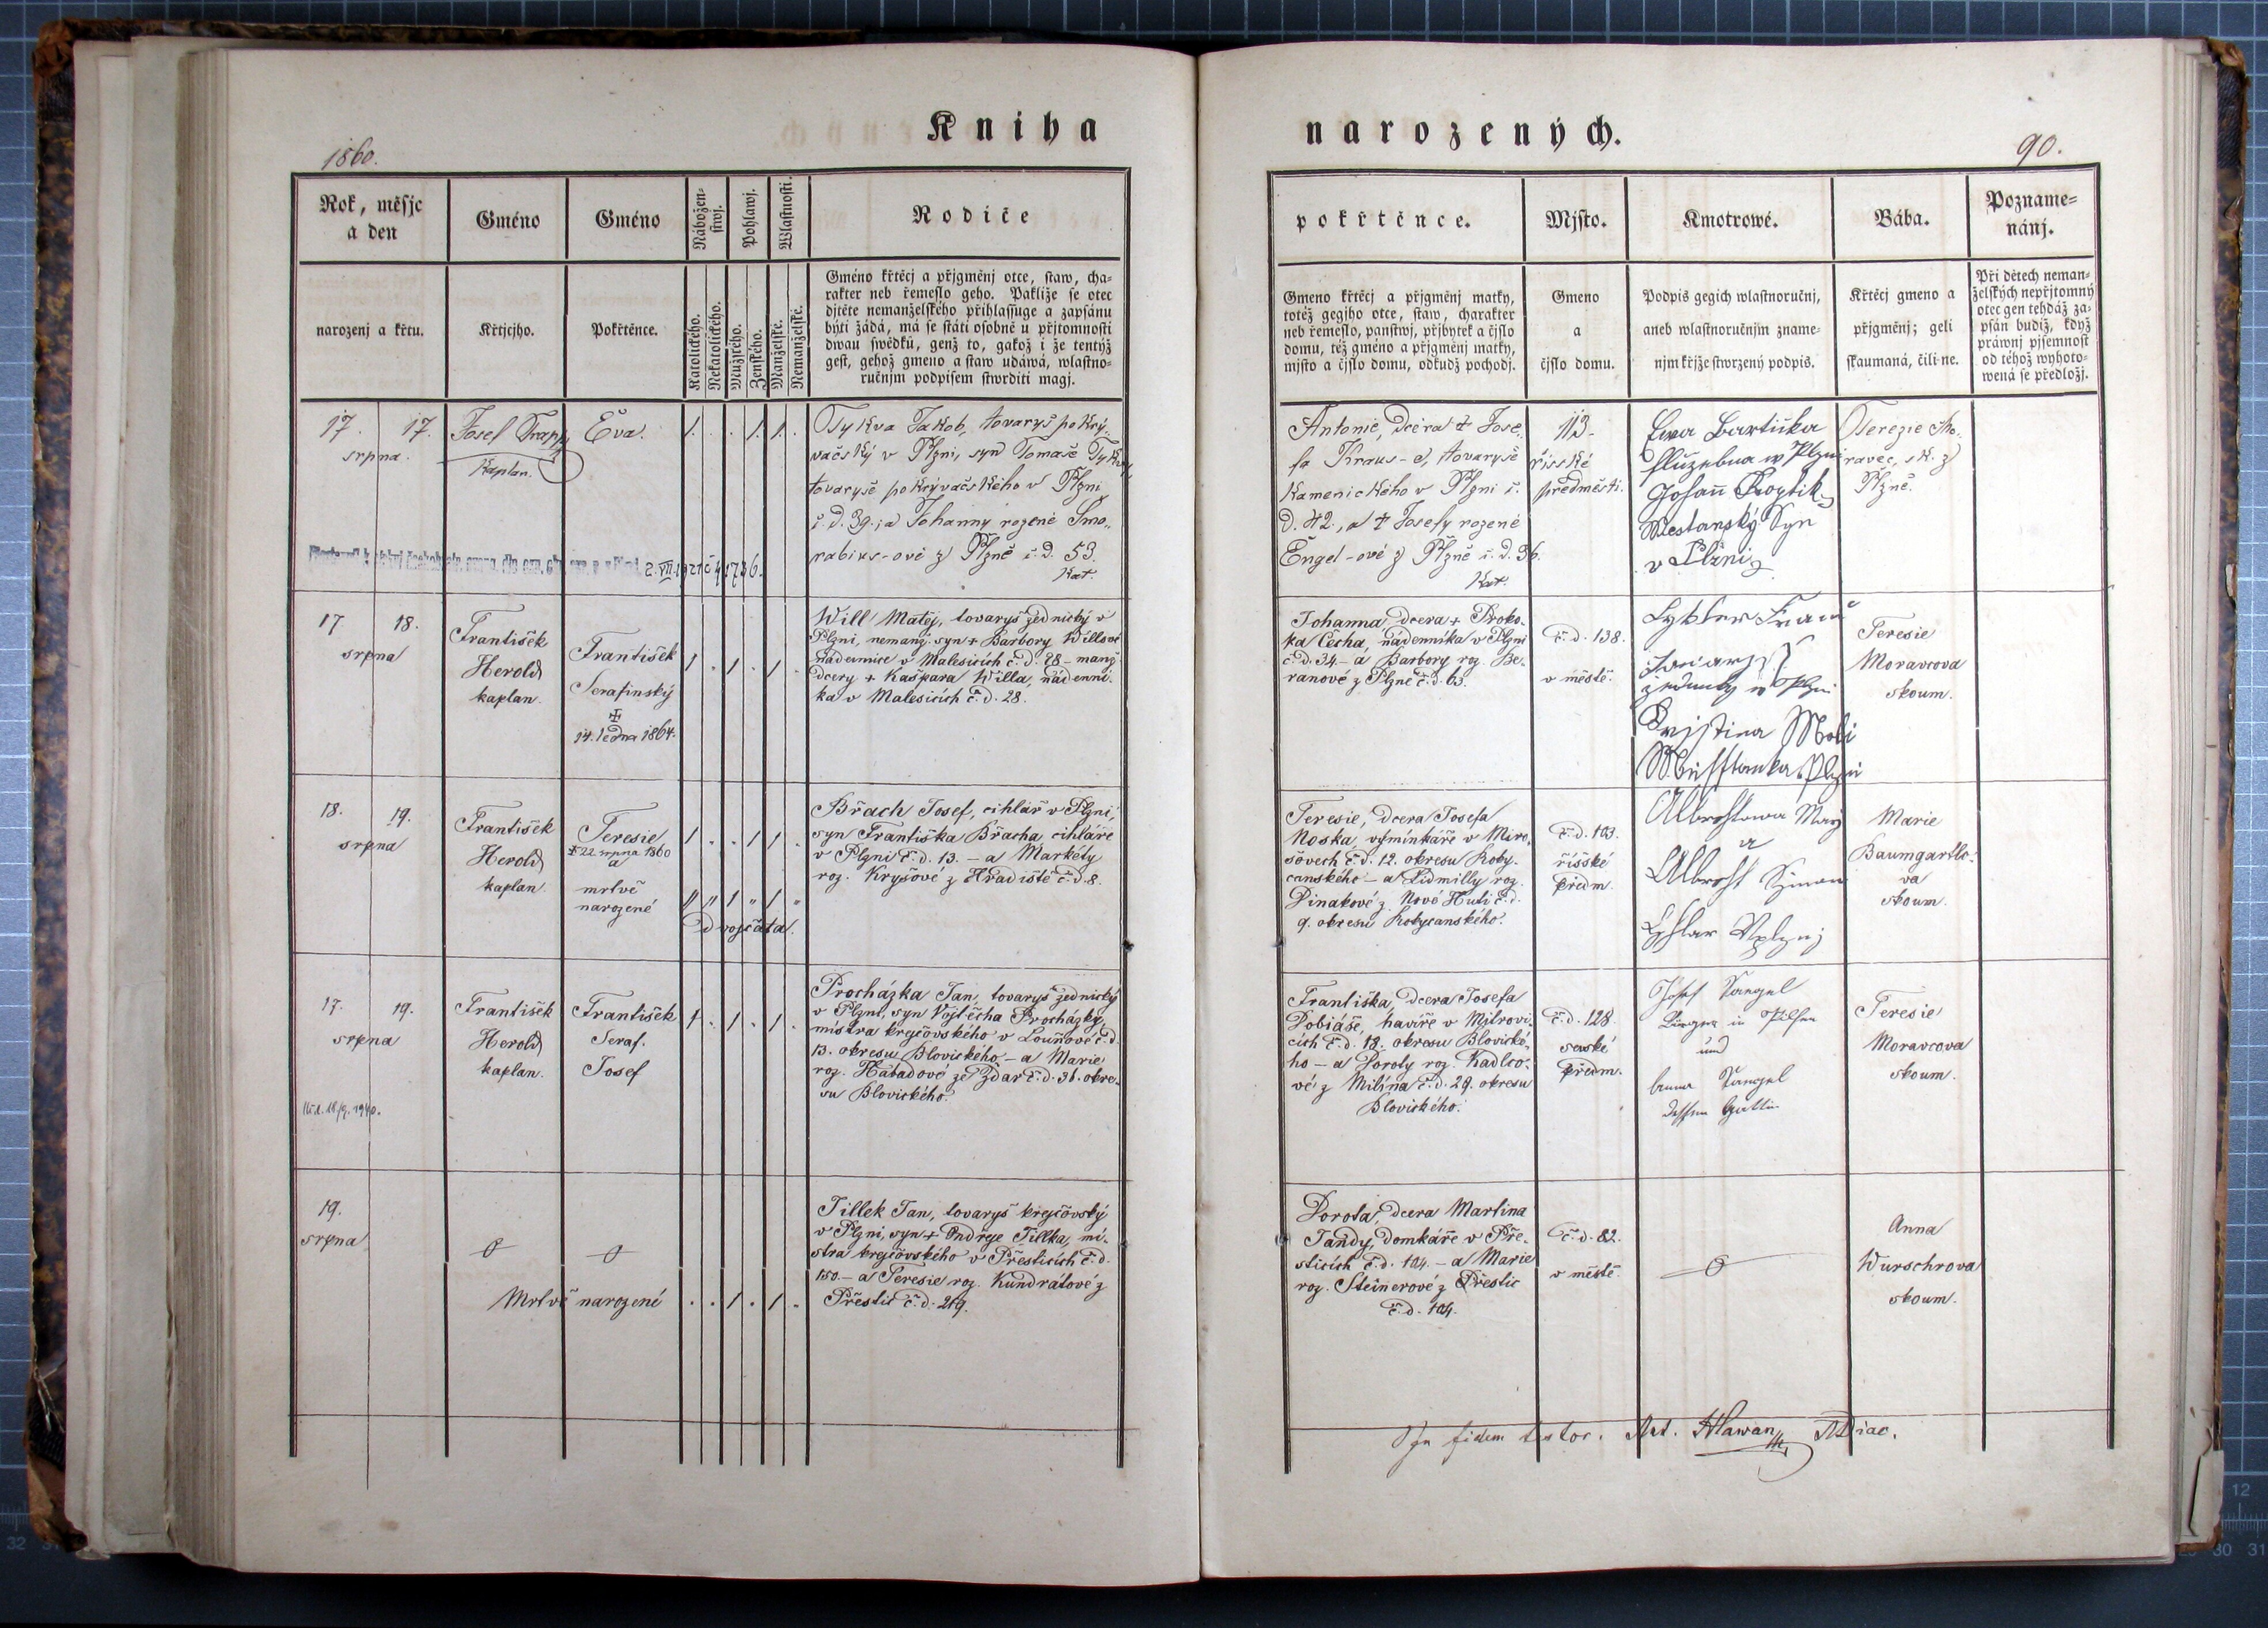 Kniha
narozených.
1860.
90.
Rok, měsjc
a den
Gméno
Gméno
Nábožen-
stwj.
Pohlawj.
Wlastnosti.
Rodiče
narozenj a křtu.
Křtjcjho.
Pokřtěnce.
Katolického.
Nekatolického.
Mužského.
Ženského.
Manželské.
Nemanželské.
Gméno křtěcj a přjgměnj otce, staw, cha-
rakter neb řemeslo geho. Pakliže se otec
djtěte nemanželského přihlassuge a zapsánu
býti žádá, má se státi osobně u přjtomnosti
dwau swědků, genž to, gakož i že tentýž
gest, gehož gmeno a staw udáwá, wlastno-
ručnjm podpisem stwrditi magj.
17. 17.
srpna.
Josef Trapp
Kaplan.
Eva.
1. . . 1. 1. .
Tykva Jakob, tovaryš pokrý-
vačský v Plzni, syn Tomáše Tykvy
tovaryše pokrývačského v Plzni
č. d. 39. a Johanny rozené Smo-
rabius-ové z Plzně č. d. 53.
Kat.
2. VII. 1921 č 41736.
17 18.
srpna
František
Herold
kaplan.
František
Serafinský
14. ledna 1864.
1 . 1 . 1 .
Will Matěj, tovaryš zednický v
Plzni, nemanž. syn + Barbory Willové
nádennice v Malesicích č. d. 28 – manž.
dcery + Kašpara Willa, nádenní-
ka v Malesicích č. d. 28.
18. 19.
srpna
František
Herold
kaplan
Teresie
+ 22. srpna 1860
a
mrtvě
narozené
1 . . 1 1 .
„ „ 1 „ 1 „
Dvojčata.
Břach Josef, cihlář v Plzni,
syn Františka Břacha, cihláře
v Plzni č. d. 13. – a Markéty
roz. Kryšové z Hradiště č. d. 8.
17. 19.
srpna
František
Herold
kaplan.
František
Seraf.
Josef
1 . 1 . 1 .
Procházka Jan, tovaryš zednický
v Plzni, syn Vojtěcha Procházky,
mistra krejčovského v Louňové č. d.
13. okresu Blovického – a Marie
roz. Habadové ze Ždar č. d. 36. okre-
su Blovického.
19.
srpna
Mrtvě narozené
. . 1 . 1 .
Tillek Jan, tovaryš krejčovský
v Plzni, syn + Ondřeje Tillka, mi-
stra krejčovského v Přesticích č. d.
150. – a Teresie roz. Kundrátové z
Přestic č. d. 219.
pokřtěnce.
Mjsto.
Kmotrowé.
Bába.
Pozname-
nánj.
Gmeno křtěcj a přjgměnj matky,
totéž gegjho otce, staw, charakter
neb řemeslo, panstwj, přjbytek a čjslo
domu, též gméno a přjgměnj matky,
mjsto a čjslo domu, odkudž pochodj.
Gmeno
a
čjslo domu.
Podpis gegich wlastnoručnj,
aneb wlastnoručnjm zname-
njm křjže stwrzený podpis.
Křtěcj gmeno a
přjgměnj; geli
skaumaná, čili ne.
Při dětech neman-
želských nepřjtomný
otec gen tehdáž za-
psán budiž, když
práwnj pjsemnost
od téhož wyhoto-
wená se předložj.
Antonie, dcera + Jose-
fa Kraus-e, tovaryše
kamenického v Plzni č.
d. 42., a + Josefy rozené
Engel-ové z Plzně č. d. 36.
Kat.
113.
říšské
předměstí.
Ewa Bartuška
služebna w Plzni
Johann
Mestanský Syn
v Plzni
Terezie Mo-
ravec, sk. z
Plzně.
Johanna, dcera + Proko-
pa Čecha, nádenníka v Plzni
č. d. 34 – a Barbory roz. Be-
ranové z Plzně č. d. 63.
č. d. 138.
v městě.
w Plzni
Teresie
Moravcova
skoum.
Teresie, dcera Josefa
Noska, výmínkáře v Miro-
šovech č. d. 12. okresu Roky-
canského – a Lidmilly roz.
Dinakové z Nové Huti č. d.
9. okresu Rokycanského.
č. d. 103.
říšské
předm.
a
Marie
Baumgartlo-
va
skoum.
Františka, dcera Josefa
Tobiáše, havíře v Mitrovi-
cích č. d. 18. okresu Blovické-
ho – a Doroty roz. Kadlco-
vé z Milína č. d. 29. okresu
Blovického.
č. d. 128.
saské
předm.
Josef Tangel
Bürger in Pilsen
und
Anna Tangel
dessen Gattin
Teresie
Moravcova
skoum.
Dorota, dcera Martina
Jandy, domkáře v Pře-
sticích č. d. 104. – a Marie
roz. Steinerové z Přestic
č. d. 104.
č. d. 82.
v městě.
Anna
Wurschrova
skoum.
In fidem testor. Ant. Hlawan Adiac.